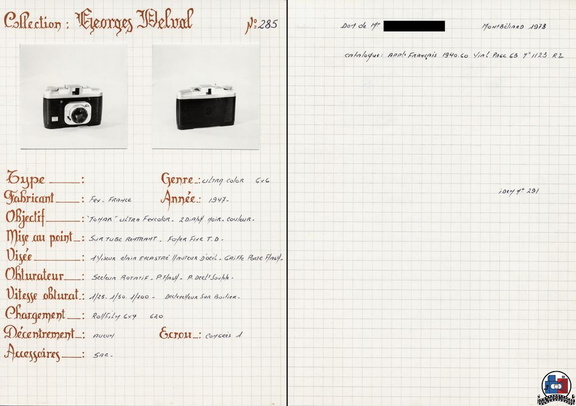 Collection : Georges Delval N° 285
Type :
Genre : Ultra Color 6x6
Fabricant : Fex. France
Année : 1947.
Objectif : "Tomar" Ultra Fexcolor. 2 Diaph Noir. Couleur.
Mise au point : Sur Tube Rentrant. Foyer Fixe T.D.
Visée : Clair Encastré Hauteur d'oeil. Griffe Flash.
Obturateur : Secteur Rotatif.
Vitesse obturat : 1/25. 1/50 1/100. Déclencheur Sur Boitier.
Chargement : Rollfilm 6x9 620
Décentrement : Aucun
Ecrou : Congrès 1
Accessoires : Sac.
Don de Mr Montbéliard 1978
Catalogue: App. Français 1940.60 Vial Page 63 N° 1123 R2
Idem N° 291